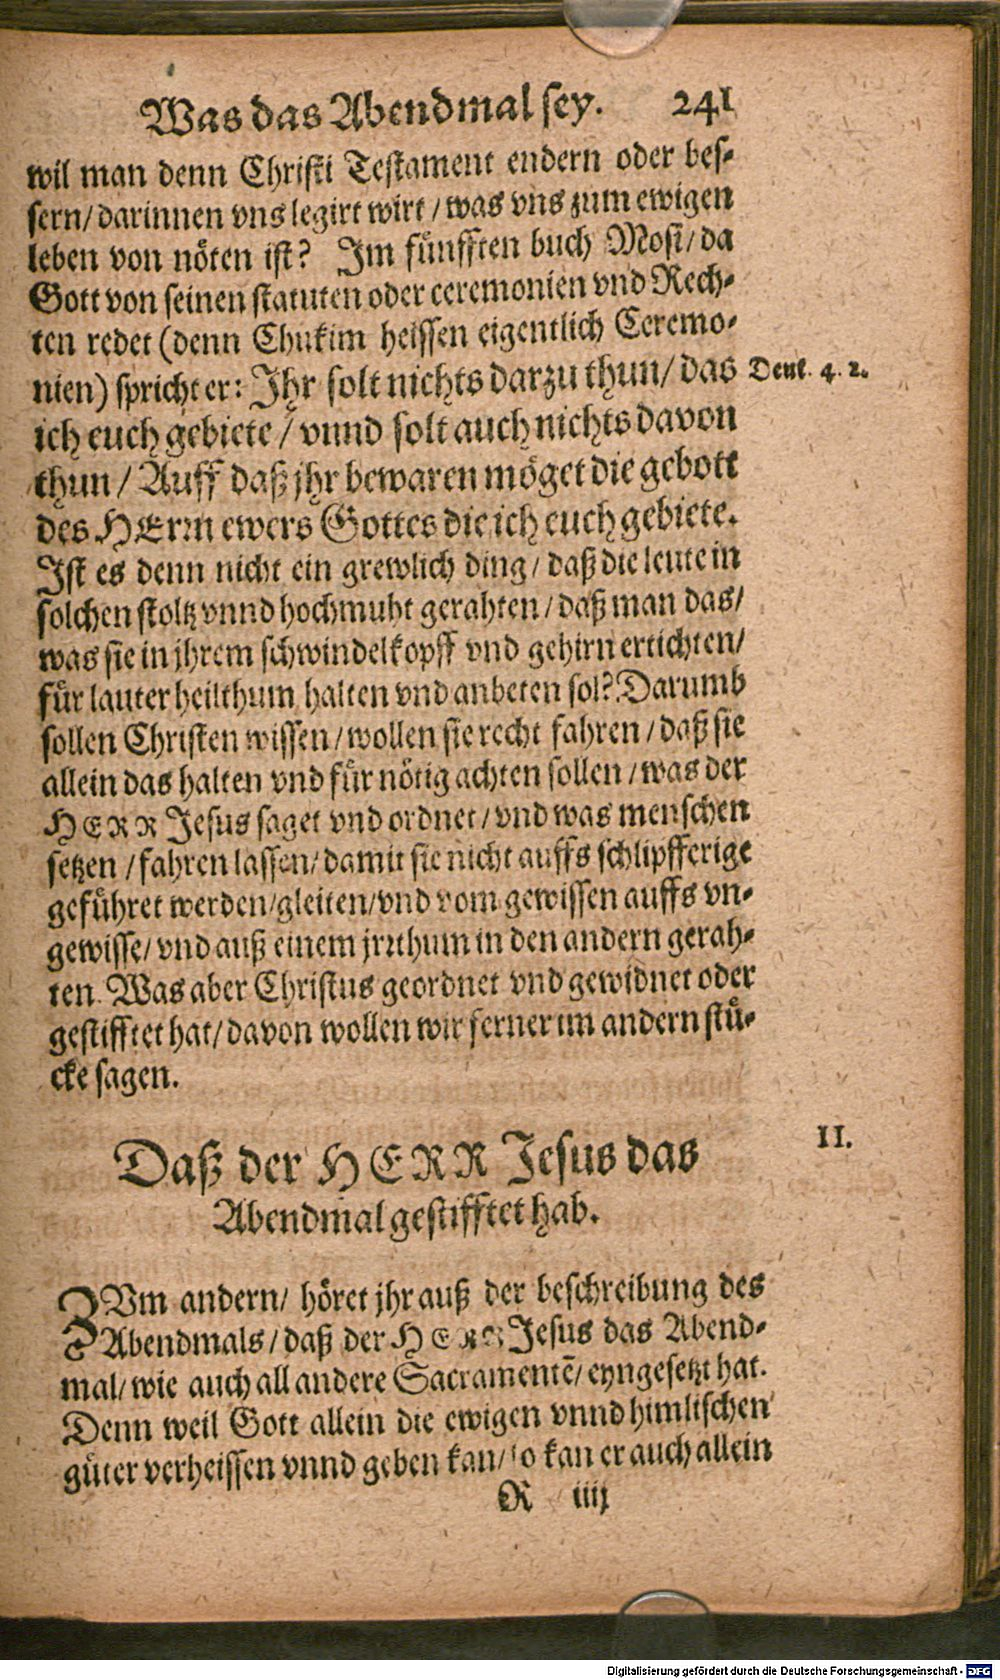 Was das Abendmal sey. 241
wil man denn Christi Testament endern oder bes-
sern/ darinnen vns legirt wirt / was vns zum ewigen
leben von nöten ist? Im fünfften buch Mosi/ da
Gott von seinen statuten oder ceremonien vnd Rech-
ten redet (denn Chukim heissen eigentlich Ceremo-
nien) spricht er: Ihr solt nichts darzu thun/ das
Deut. 4. 2.
ich euch gebiete / vnnd solt auch nichts davon
thun / Auff daß jhr bewaren möget die gebott
des HErrn ewers Gottes die ich euch gebiete.
Ist es denn nicht ein grewlich ding / daß die leute in
solchen stoltz vnnd hochmuht gerahten / daß man das/
was sie in jhrem schwindelkopff vnd gehirn ertichten/
für lauter heilthum halten vnd anbeten sol? Darumb
sollen Christen wissen / wollen sie recht fahren / daß sie
allein das halten vnd für nötig achten sollen / was der
HERR Jesus saget vnd ordnet / vnd was menschen
setzen / fahren lassen/ damit sie nicht auffs schlipfferige
geführet werden/ gleiten/ vnd vom gewissen auffs vn-
gewisse/ vnd auß einem jrrthum in den andern gerah-
ten. Was aber Christus geordnet vnd gewidnet oder
gestifftet hat/ davon wollen wir ferner im andern stü-
cke sagen.
Daß der HERR Jesus das
II.
Abendmal gestifftet hab.
ZVm andern/ höret jhr auß der beschreibung des
Abendmals / daß der HERR Jesus das Abend-
mal/ wie auch all andere Sacramentē/ eyngesetzt hat.
Denn weil Gott allein die ewigen vnnd himlischen
güter verheissen vnnd geben kan/ so kan er auch allein
R iiij
Digitalisierung gefördert durch die Deutsche Forschungsgemeinschaft - DFG